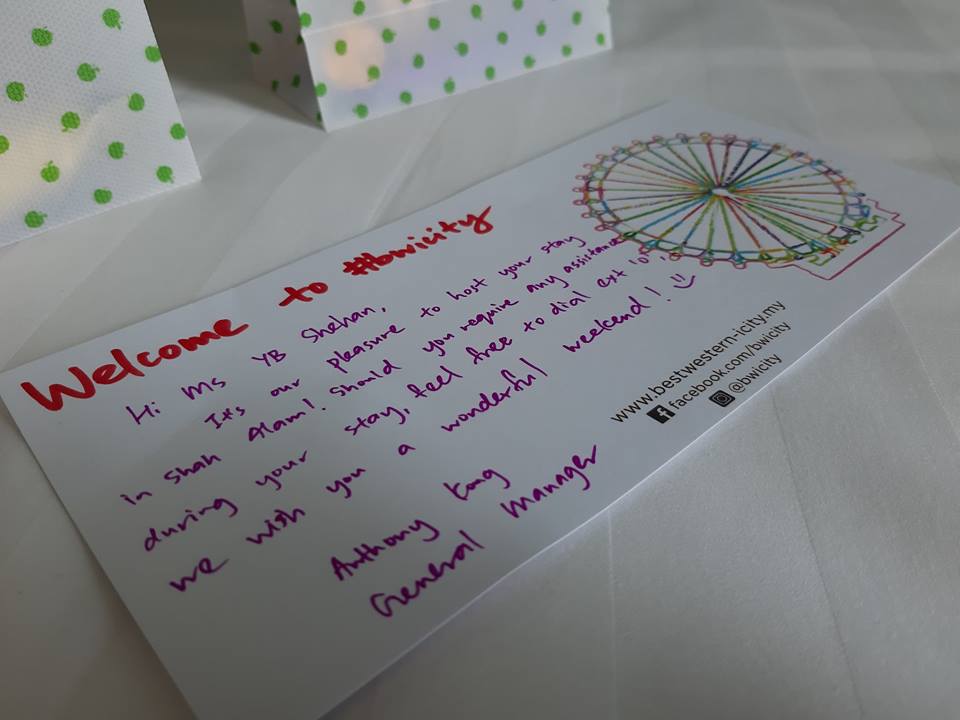 Welcome to #bwicity
Hi Ms YB Shehan,
It's our pleasure to host your stay
in Shah Alam! Should you require any assistance
during your stay, feel free to dial ext 101,
we wish you a wonderful weekend!
Anthony
General Manager
www.bestwestern-icity.my
facebook.com/bwicity
@bwicity